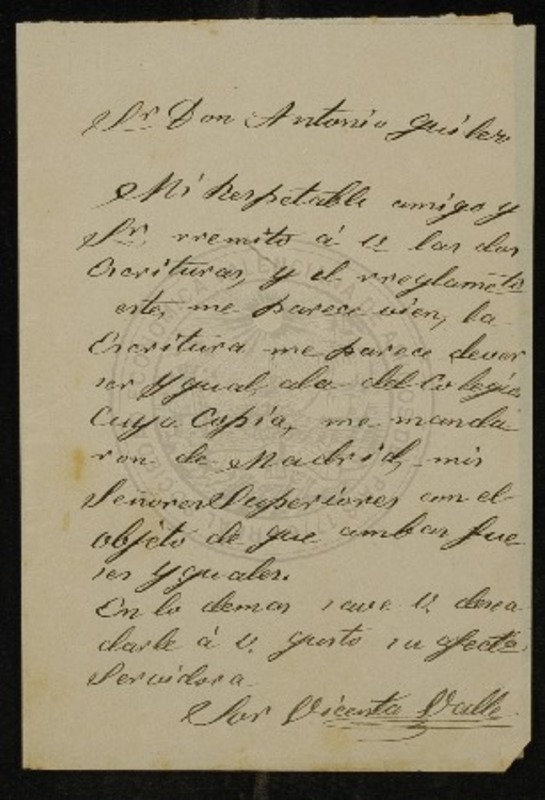 Sr. Don Antonio Guiler
Mi Respetable amigo y
Sr. rremito á V. las dos
Escrituras, y el rreglameto
este, me parece vien, la
Escritura me parece dever
ser Ygual ala del Colegio,
Cuya Copia, me manda
ron de Madrid, mis
Señores Superiores con el
objeto de que ambas fue
ses Yguales.
En lo demas save V. desea
darle á V. gusto su afecta
Servidora
Sor Vicenta Valle